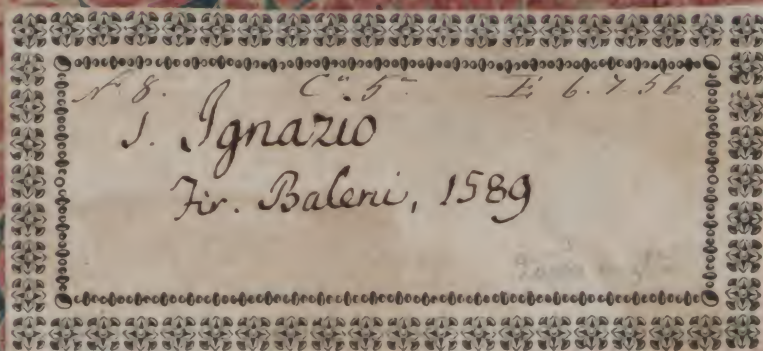 N 8. Cª 5ª E 6.7.56
S. Ignazio
Fir. Baleni, 1589